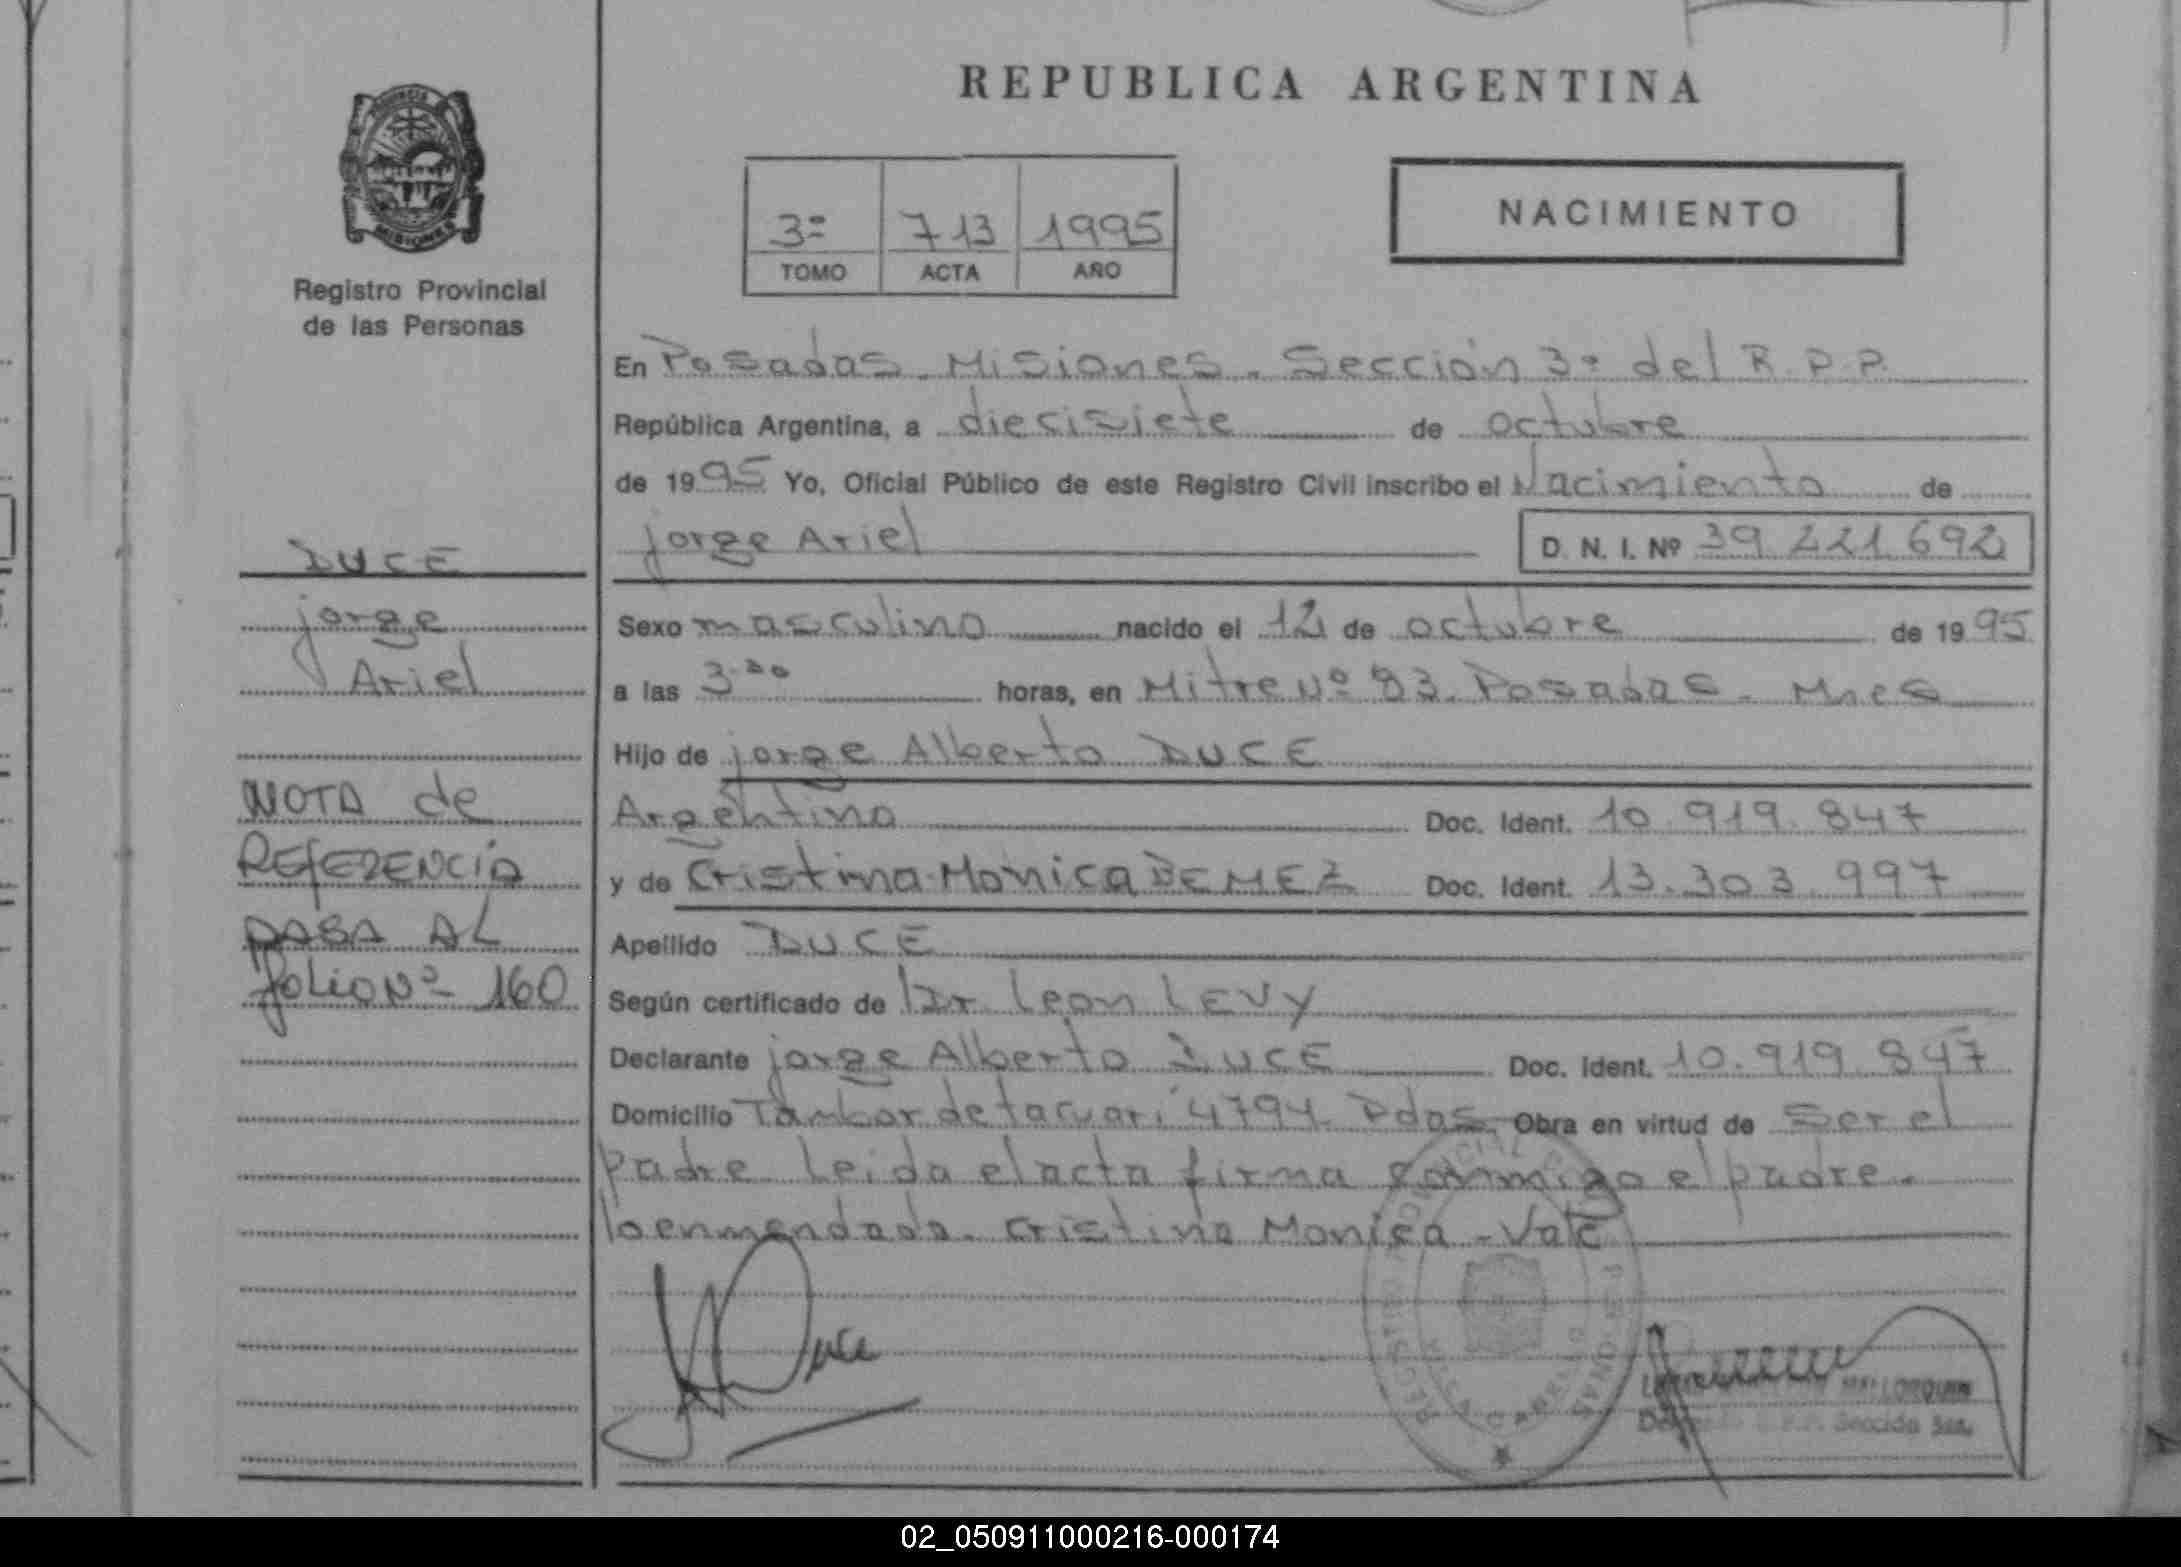 REPUBLICA ARGENTINA
PROVINCIA
MISIONES
Registro Provincial
de las Personas
3º 713 1995
TOMO ACTA AÑO
NACIMIENTO
En Posadas. Misiones. Sección 3º del R.P.P.
República Argentina, a diecisiete de octubre
de 1995 Yo, Oficial Público de este Registro Civil inscribo el Nacimiento de
jorge Ariel D. N. I. Nº 39 221 692
DUCE
jorge
Ariel
NOTA de
REFERENCIA
PASA AL
folio Nº 160
Sexo masculino nacido el 12 de octubre de 1995
a las 3.20 horas, en Mitre Nº 83. Posadas. Mnes
Hijo de jorge Alberto DUCE
Argentino Doc. Ident. 10.919.847
y de Cristina Monica DEMEZ Doc. Ident. 13.303.997
Apellido DUCE
Según certificado de Dr. Leon LEVY
Declarante jorge Alberto DUCE Doc. Ident. 10.919.847
Domicilio Tambor de tacuari 4794 Pdas Obra en virtud de Ser el
padre. Leida el acta firma conmigo el padre.
lo enmendado. Cristina Monica - Vale
Duce
MALLORQUIN
R.P.P. Sección 3ra.
02_050911000216-000174